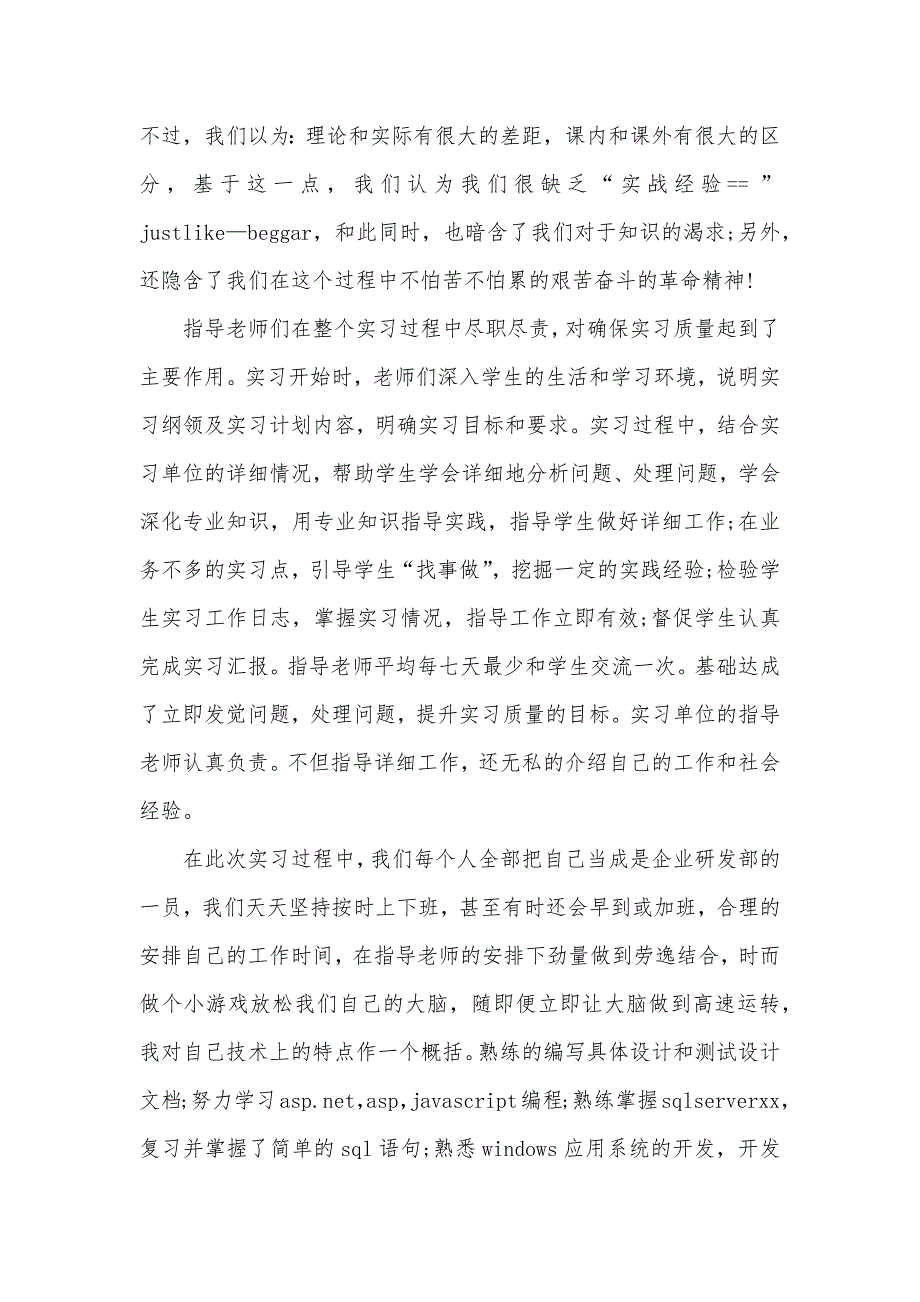 不过，我们以为：理论和实际有很大的差距，课内和课外有很大的区
分，基于这一点，我们认为我们很缺乏“实战经验==”
justlike—beggar，和此同时，也暗含了我们对于知识的渴求;另外，
还隐含了我们在这个过程中不怕苦不怕累的艰苦奋斗的革命精神!
指导老师们在整个实习过程中尽职尽责，对确保实习质量起到了
主要作用。实习开始时，老师们深入学生的生活和学习环境，说明实
习纲领及实习计划内容，明确实习目标和要求。实习过程中，结合实
习单位的详细情况，帮助学生学会详细地分析问题、处理问题，学会
深化专业知识，用专业知识指导实践，指导学生做好详细工作;在业
务不多的实习点，引导学生“找事做”，挖掘一定的实践经验;检验学
生实习工作日志，掌握实习情况，指导工作立即有效;督促学生认真
完成实习汇报。指导老师平均每七天最少和学生交流一次。基础达成
了立即发觉问题，处理问题，提升实习质量的目标。实习单位的指导
老师认真负责。不但指导详细工作，还无私的介绍自己的工作和社会
经验。
在此次实习过程中，我们每个人全部把自己当成是企业研发部的
一员，我们天天坚持按时上下班，甚至有时还会早到或加班，合理的
安排自己的工作时间，在指导老师的安排下劲量做到劳逸结合，时而
做个小游戏放松我们自己的大脑，随即便立即让大脑做到高速运转，
我对自己技术上的特点作一个概括。熟练的编写具体设计和测试设计
文档;努力学习asp.net,asp,javascript编程;熟练掌握sqlserverxx，
复习并掌握了简单的sql语句;熟悉windows应用系统的开发，开发